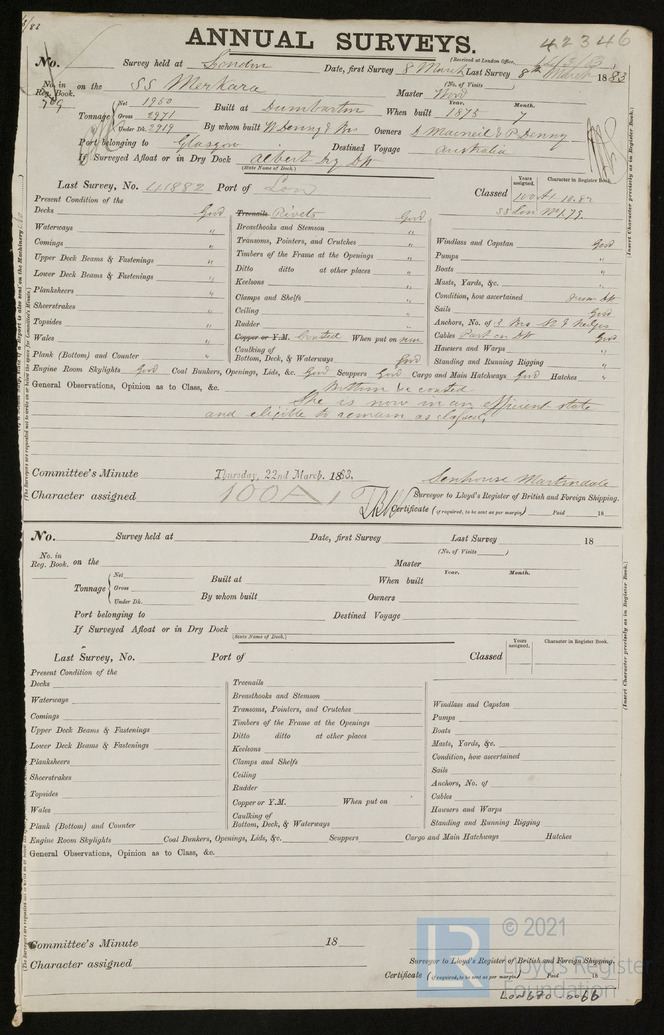 /82
ANNUAL SURVEYS.
42346
No. Survey held at London Date, first Survey 8 March Last Survey 8th March 1883
(Received at London Office,
(No. of Visits
No. in Reg. Book. 769 on the SS Merkara Master Word
Tonnage { Net 1950 Gross 2971 Under Dk. 2919
Built at Dumbarton When built Year. 1875 Month. 7
By whom built W Denny & Bros Owners D Macneil & P Denny
Port belonging to Glasgow Destined Voyage Australia
If Surveyed Afloat or in Dry Dock Albert Dry Dk
(State Name of Dock.)
Last Survey, No. 41882 Port of Lon Classed
Years assigned. Character in Register Book.
100A1. 10.82
SS Lon No1.79.
(Insert Character precisely as in Register Book.)
Present Condition of the
Decks Good
Waterways "
Comings "
Upper Deck Beams & Fastenings "
Lower Deck Beams & Fastenings "
Planksheers "
Sheerstrakes "
Topsides "
Wales "
Plank (Bottom) and Counter "
Treenails Rivets Good
Breasthooks and Stemson "
Transoms, Pointers, and Crutches "
Timbers of the Frame at the Openings "
Ditto ditto at other places "
Keelsons "
Clamps and Shelfs "
Ceiling "
Rudder "
Copper or Y.M. Coated When put on now
Caulking of
Bottom, Deck, & Waterways Good
Windlass and Capstan Good
Pumps "
Boats "
Masts, Yards, &c. "
Condition, how ascertained from Dk
Sails Good
Anchors, No. of 3 Brs
Cables Part on Dk Good
Hawsers and Warps "
Standing and Running Rigging "
Engine Room Skylights Good Coal Bunkers, Openings, Lids, &c. Good Scuppers Good Cargo and Main Hatchways Good Hatches "
General Observations, Opinion as to Class, &c. Bottom be coated
She is now in an efficient state
and eligible to remain as classed.
Committee's Minute Thursday, 22nd March, 1883. Senhouse Martindale
Character assigned 100A1 Surveyor to Lloyd's Register of British and Foreign Shipping.
Certificate (if required, to be sent as per margin) Paid 18
No. Survey held at Date, first Survey Last Survey 18
(No. of Visits )
No. in Reg. Book. on the Master
Tonnage { Net Gross Under Dk.
Built at When built Year. Month.
By whom built Owners
Port belonging to Destined Voyage
If Surveyed Afloat or in Dry Dock
(State Name of Dock.)
Last Survey, No. Port of Classed
Years assigned. Character in Register Book.
(Insert Character precisely as in Register Book.)
Present Condition of the
Decks
Waterways
Comings
Upper Deck Beams & Fastenings
Lower Deck Beams & Fastenings
Planksheers
Sheerstrakes
Topsides
Wales
Plank (Bottom) and Counter
Treenails
Breasthooks and Stemson
Transoms, Pointers, and Crutches
Timbers of the Frame at the Openings
Ditto ditto at other places
Keelsons
Clamps and Shelfs
Ceiling
Rudder
Copper or Y.M. When put on
Caulking of
Bottom, Deck, & Waterways
Windlass and Capstan
Pumps
Boats
Masts, Yards, &c.
Condition, how ascertained
Sails
Anchors, No. of
Cables
Hawsers and Warps
Standing and Running Rigging
Engine Room Skylights Coal Bunkers, Openings, Lids, &c. Scuppers Cargo and Main Hatchways Hatches
General Observations, Opinion as to Class, &c.
Committee's Minute 18
Character assigned
Surveyor to Lloyd's Register of British and Foreign Shipping.
Certificate (if required, to be sent as per margin) Paid 18
LR
© 2021
Lloyd's Register
Foundation
LON670-0066